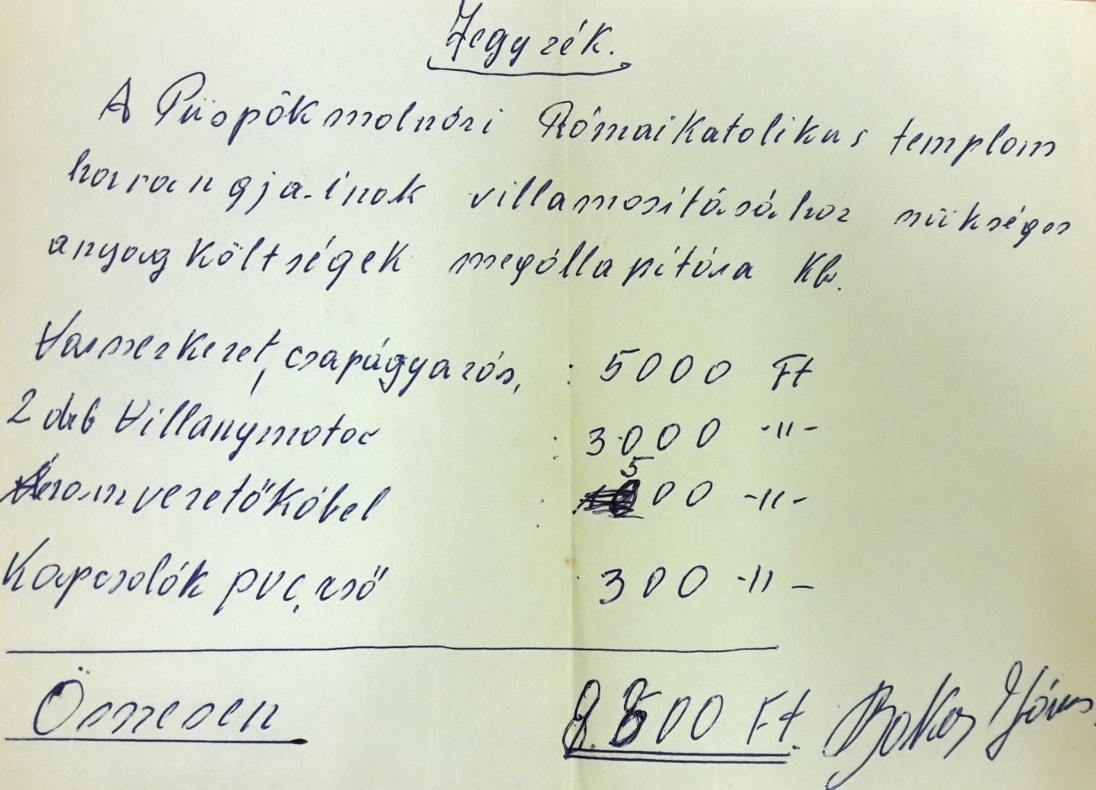 Jegyzék.
A Püspökmolnári Rómaikatolikus templom
harangja-inak villamosításához szükséges
anyag költségek megállapítása kb.
Vasszerkezet, csapágyazás, : 5000 Ft
2 drb Villanymotor : 3000 -"-
Áramvezetőkábel : 500 -"-
Kapcsolók pvc, cső : 300 -"-
Összesen 8.800 Ft. Bokor János